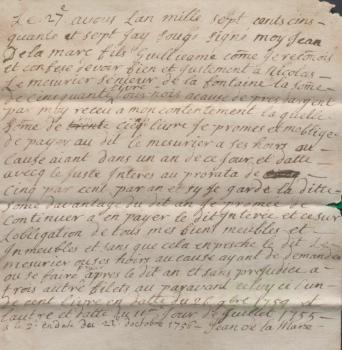 Le 27e avous Lan mille sept cents cin-
quante et sept Jay sougs signé moy Jean
Dela marc fils Guilleaume come Je reconois
et confese devoir bien et Justement a Nicolas
Le meurier senieur de la fontaine La some
de cent cinquante livre nois acause de pres dargent
par moy receu a mon contentement la quelle
some de livre Je promes et moblige
de payer au dit le mesurier a ses hoirs ou
Cause aiant dans un an de ce Jour et datte
avecq le Juste Interes au prorata de
Cinq par cent par an et sy Je garde la ditte
some davantage du dit an Je promes de
Continuer a en payer le dit Interes et ce sur
Lobligation de tous mes bien meubles et
Inmeubles et sans que cela enpesche le dit Le
mesurier ou ses hoirs ou cause ayant de demander
ou se faire apres le dit an et sans prejudice a
trois autre bilets au paravant celuy ci lun
de cent livre en datte du 26 9bre 1750 et
Lautre et datte du 11me Jour de Juillet 1755
a le 3e en date du 22e doctobre 1756 - Jean de la Mare